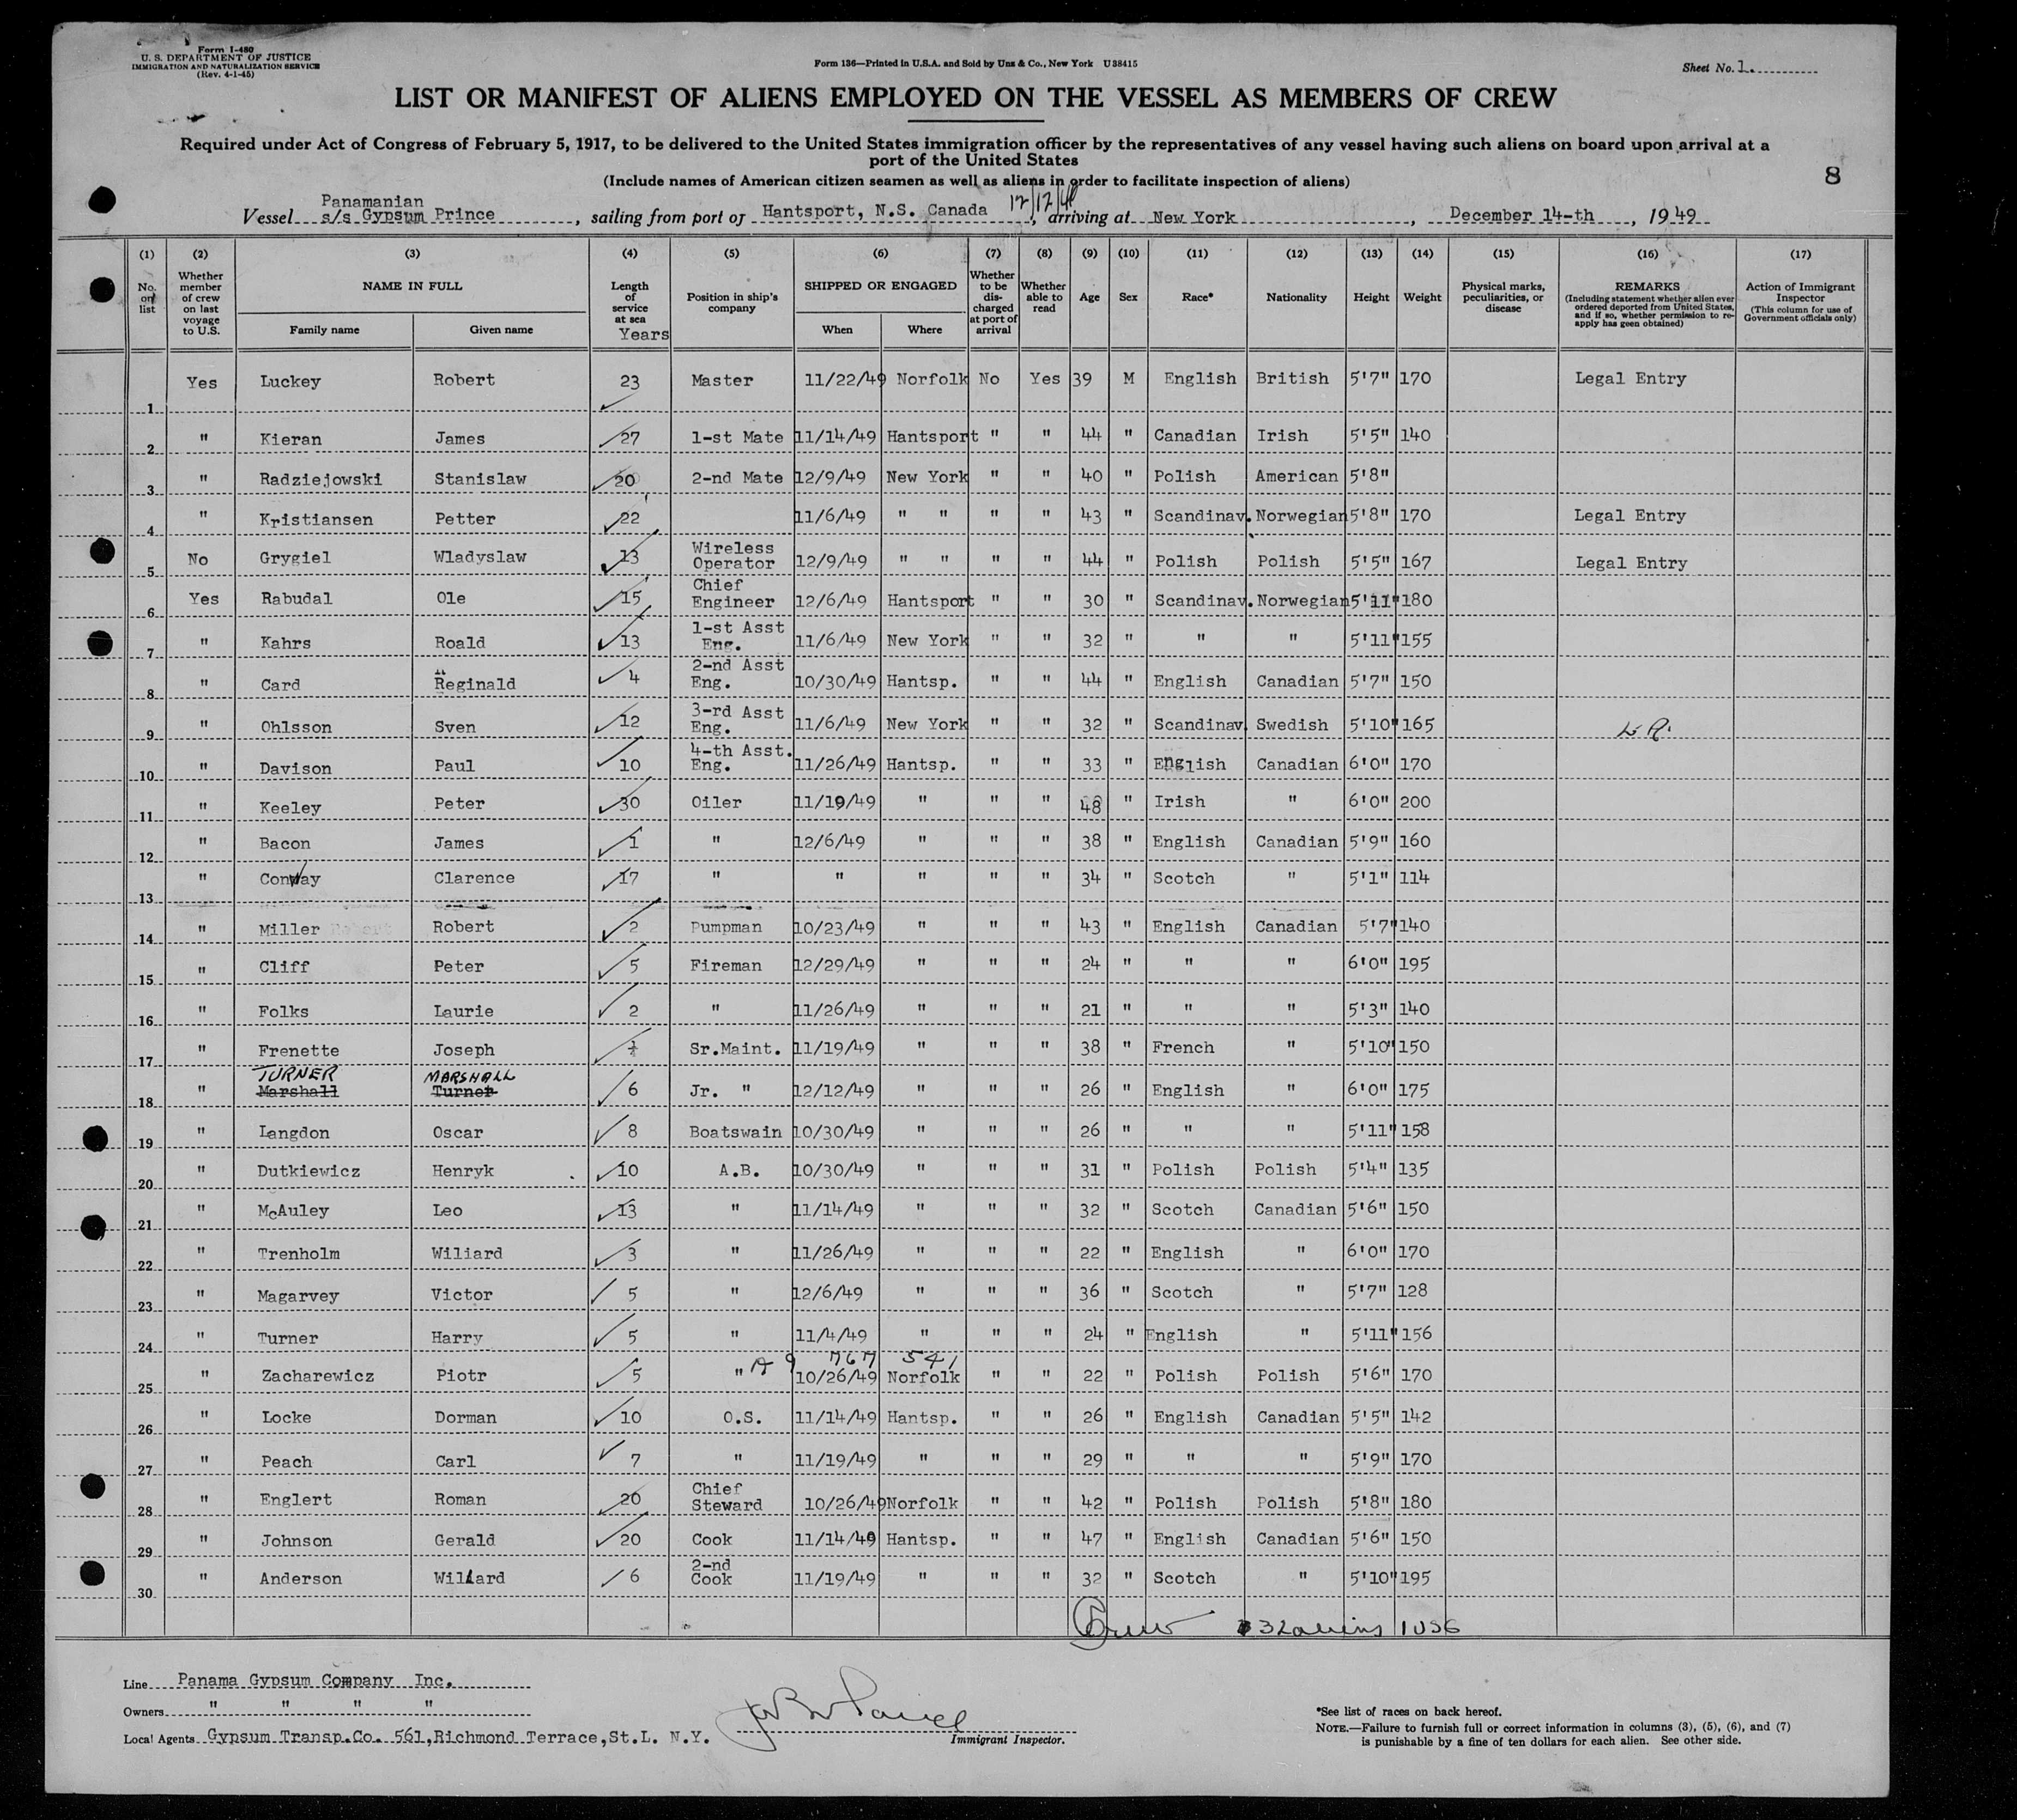 Form I-480
U. S. DEPARTMENT OF JUSTICE
IMMIGRATION AND NATURALIZATION SERVICE
(Rev. 4-1-45)
Form 136—Printed in U.S.A. and Sold by Unz & Co., New York U38415
Sheet No. 1.
LIST OR MANIFEST OF ALIENS EMPLOYED ON THE VESSEL AS MEMBERS OF CREW
Required under Act of Congress of February 5, 1917, to be delivered to the United States immigration officer by the representatives of any vessel having such aliens on board upon arrival at a
port of the United States
(Include names of American citizen seamen as well as aliens in order to facilitate inspection of aliens)
8
Panamanian
Vessel s/s Gypsum Prince, sailing from port of Hantsport, N.S. Canada 12/12/49, arriving at New York, December 14-th, 1949
(1) (2) (3) (4) (5) (6) (7) (8) (9) (10) (11) (12) (13) (14) (15) (16) (17)
No. on list
Whether member of crew on last voyage to U.S.
NAME IN FULL
Family name
Given name
Length of service at sea
Years
Position in ship's company
SHIPPED OR ENGAGED
When
Where
Whether to be discharged at port of arrival
Whether able to read
Age
Sex
Race*
Nationality
Height
Weight
Physical marks, peculiarities, or disease
REMARKS
(Including statement whether alien ever ordered deported from United States, and if so, whether permission to re-apply has geen obtained)
Action of Immigrant Inspector
(This column for use of Government officials only)
1 Yes Luckey Robert 23 Master 11/22/49 Norfolk No Yes 39 M English British 5'7" 170 Legal Entry
2 " Kieran James 27 1-st Mate 11/14/49 Hantsport " " 44 " Canadian Irish 5'5" 140
3 " Radziejowski Stanislaw 20 2-nd Mate 12/9/49 New York " " 40 " Polish American 5'8"
4 " Kristiansen Petter 22 11/6/49 " " " " 43 " Scandinav. Norwegian 5'8" 170 Legal Entry
5 No Grygiel Wladyslaw 13 Wireless Operator 12/9/49 " " " " 44 " Polish Polish 5'5" 167 Legal Entry
6 Yes Rabudal Ole 15 Chief Engineer 12/6/49 Hantsport " " 30 " Scandinav. Norwegian 5'11" 180
7 " Kahrs Roald 13 1-st Asst Eng. 11/6/49 New York " " 32 " " " 5'11" 155
8 " Card Reginald 4 2-nd Asst Eng. 10/30/49 Hantsp. " " 44 " English Canadian 5'7" 150
9 " Ohlsson Sven 12 3-rd Asst Eng. 11/6/49 New York " " 32 " Scandinav. Swedish 5'10" 165
10 " Davison Paul 10 4-th Asst. Eng. 11/26/49 Hantsp. " " 33 " English Canadian 6'0" 170
11 " Keeley Peter 30 Oiler 11/19/49 " " " 48 " Irish " 6'0" 200
12 " Bacon James 1 " 12/6/49 " " " 38 " English Canadian 5'9" 160
13 " Conway Clarence 17 " " " " " 34 " Scotch " 5'1" 114
14 " Miller Robert 2 Pumpman 10/23/49 " " " 43 " English Canadian 5'7" 140
15 " Cliff Peter 5 Fireman 12/29/49 " " " 24 " " " 6'0" 195
16 " Folks Laurie 2 " 11/26/49 " " " 21 " " " 5'3" 140
17 " Frenette Joseph Sr.Maint. 11/19/49 " " " 38 " French " 5'10" 150
TURNER MARSHALL
18 " Marshall Turner 6 Jr. " 12/12/49 " " " 26 " English " 6'0" 175
19 " Langdon Oscar 8 Boatswain 10/30/49 " " " 26 " " " 5'11" 158
20 " Dutkiewicz Henryk 10 A.B. 10/30/49 " " " 31 " Polish Polish 5'4" 135
21 " McAuley Leo 13 " 11/14/49 " " " 32 " Scotch Canadian 5'6" 150
22 " Trenholm Wiliard 3 " 11/26/49 " " " 22 " English " 6'0" 170
23 " Magarvey Victor 5 " 12/6/49 " " " 36 " Scotch " 5'7" 128
24 " Turner Harry 5 " 11/4/49 " " " 24 " English " 5'11" 156
A 9 767 541
25 " Zacharewicz Piotr 5 " 10/26/49 Norfolk " " 22 " Polish Polish 5'6" 170
26 " Locke Dorman 10 O.S. 11/14/49 Hantsp. " " 26 " English Canadian 5'5" 142
27 " Peach Carl 7 " 11/19/49 " " " 29 " " " 5'9" 170
28 " Englert Roman 20 Chief Steward 10/26/49 Norfolk " " 42 " Polish Polish 5'8" 180
29 " Johnson Gerald 20 Cook 11/14/49 Hantsp. " " 47 " English Canadian 5'6" 150
30 " Anderson Willard 6 2-nd Cook 11/19/49 " " " 32 " Scotch " 5'10" 195
Crew 32 aliens 1 USC
Line Panama Gypsum Company Inc.
Owners " " " "
Local Agents Gypsum Transp.Co. 561,Richmond Terrace,St.L. N.Y.
Immigrant Inspector.
*See list of races on back hereof.
NOTE.—Failure to furnish full or correct information in columns (3), (5), (6), and (7)
is punishable by a fine of ten dollars for each alien. See other side.